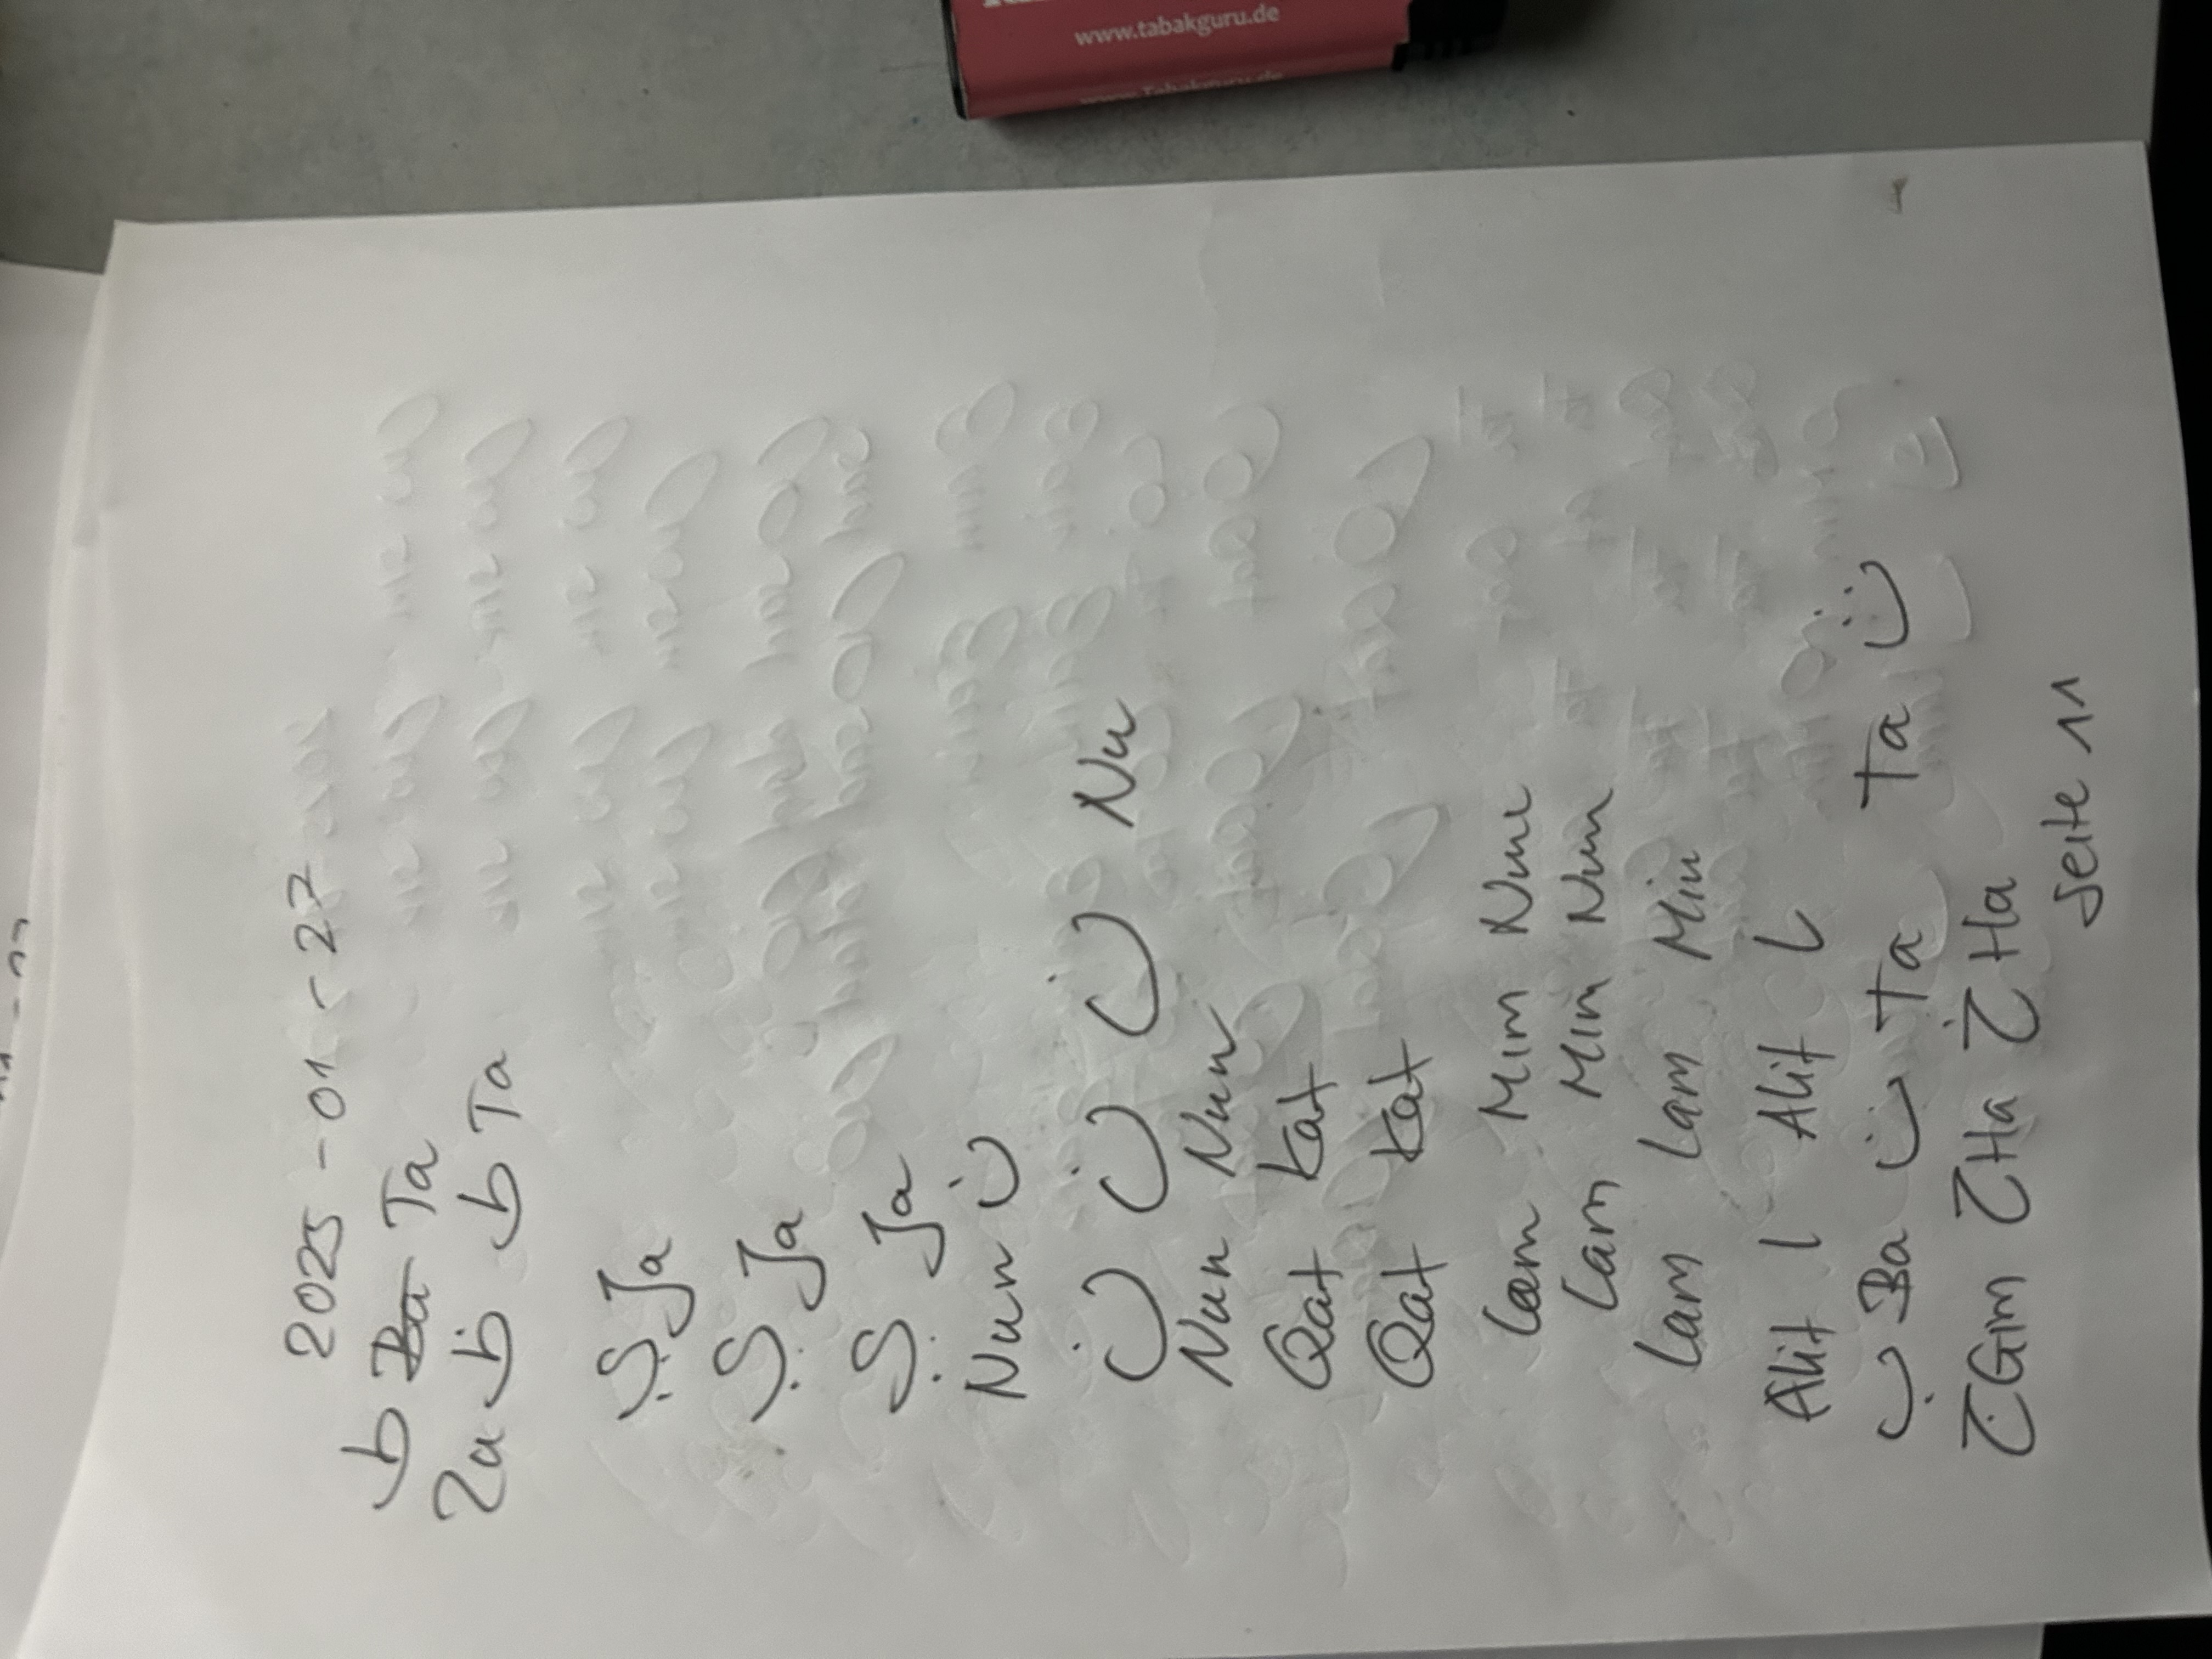 2025-01-27
ط ~~Ba~~ Ta
Za ظ ط Ta
ي Ja
ي Ja
ي Ja
Nun ن
ن ن ن Nu
Nun Nun
Qaf Kaf
Qaf Kaf
Lam Mim Nun
Lam Mim Nun
Lam Lam Mim
Alif ا Alif ا
ب Ba ت Ta Ta ث
ج Gim ح Ha خ Ha
Seite 11
www.tabakguru.de